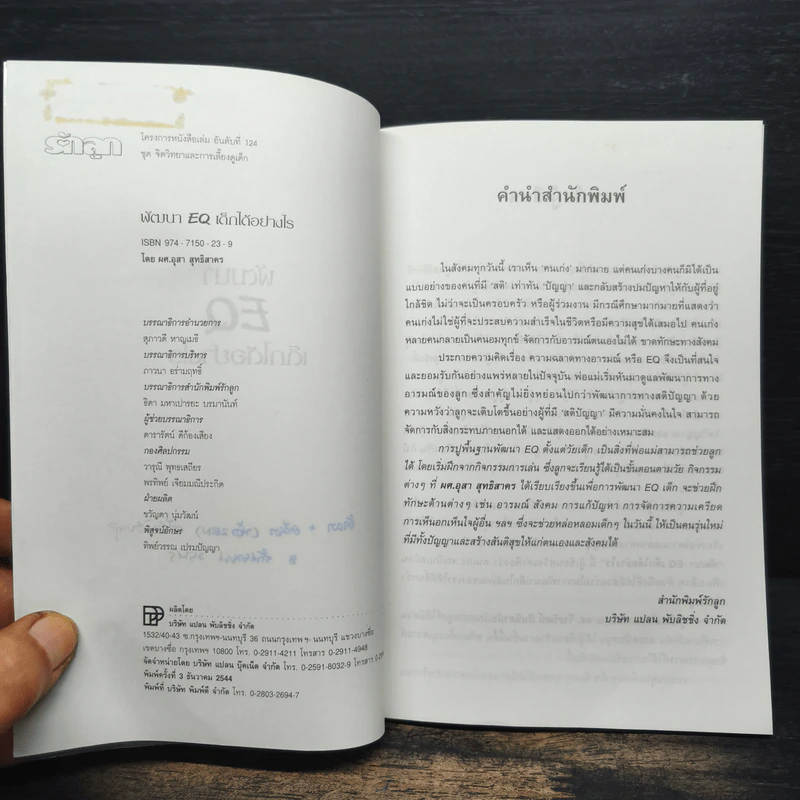 รักลูก
โครงการหนังสือเล่ม อันดับที่ 124
ชุด จิตวิทยาและการเลี้ยงดูเด็ก
พัฒนา EQ เด็กได้อย่างไร
ISBN 974-7150-23-9
โดย ผศ.อุสา สุทธิสาคร
บรรณาธิการอำนวยการ
สุภาวดี หาญเมธี
บรรณาธิการบริหาร
ภาวนา อร่ามฤทธิ์
บรรณาธิการสำนักพิมพ์รักลูก
ธิดา มหาเปารยะ บรมานันท์
ผู้ช่วยบรรณาธิการ
ดารารัตน์ ดีก้องเสียง
กองศิลปกรรม
วารุณี พุทธเสถียร
พรทิพย์ เจียมมณีประกิต
ฝ่ายผลิต
ขวัญตา นุ่มวัฒน์
พิสูจน์อักษร
ทิพย์วรรณ เปรมปัญญา
ผลิตโดย
บริษัท แปลน พับลิชชิ่ง จำกัด
1532/40-43 ซ.กรุงเทพฯ-นนทบุรี 36 ถนนกรุงเทพฯ-นนทบุรี แขวงบางซื่อ
เขตบางซื่อ กรุงเทพฯ 10800 โทร. 0-2911-4211 โทรสาร 0-2911-4948
จัดจำหน่ายโดย บริษัท แปลน บุ๊คเน็ต จำกัด โทร. 0-2591-8032-9 โทรสาร
พิมพ์ครั้งที่ 3 ธันวาคม 2544
พิมพ์ที่ บริษัท พิมพ์ดี จำกัด โทร. 0-2803-2694-7
คำนำสำนักพิมพ์
ในสังคมทุกวันนี้ เราเห็น 'คนเก่ง' มากมาย แต่คนเก่งบางคนก็มิได้เป็น
แบบอย่างของคนที่มี 'สติ' เท่าทัน 'ปัญญา' และกลับสร้างปมปัญหาให้กับผู้ที่อยู่
ใกล้ชิด ไม่ว่าจะเป็นครอบครัว หรือผู้ร่วมงาน มีกรณีศึกษามากมายที่แสดงว่า
คนเก่งไม่ใช่ผู้ที่จะประสบความสำเร็จในชีวิตหรือมีความสุขได้เสมอไป คนเก่ง
หลายคนกลายเป็นคนอมทุกข์ จัดการกับอารมณ์ตนเองไม่ได้ ขาดทักษะทางสังคม
ประกายความคิดเรื่อง ความฉลาดทางอารมณ์ หรือ EQ จึงเป็นที่สนใจ
และยอมรับกันอย่างแพร่หลายในปัจจุบัน พ่อแม่เริ่มหันมาดูแลพัฒนาการทาง
อารมณ์ของลูก ซึ่งสำคัญไม่ยิ่งหย่อนไปกว่าพัฒนาการทางสติปัญญา ด้วย
ความหวังว่าลูกจะเติบโตขึ้นอย่างผู้ที่มี 'สติปัญญา' มีความมั่นคงในใจ สามารถ
จัดการกับสิ่งกระทบภายนอกได้ และแสดงออกได้อย่างเหมาะสม
การปูพื้นฐานพัฒนา EQ ตั้งแต่วัยเด็ก เป็นสิ่งที่พ่อแม่สามารถช่วยลูก
ได้ โดยเริ่มฝึกจากกิจกรรมการเล่น ซึ่งลูกจะเรียนรู้ได้เป็นขั้นตอนตามวัย กิจกรรม
ต่างๆ ที่ ผศ.อุสา สุทธิสาคร ได้เรียบเรียงขึ้นเพื่อการพัฒนา EQ เด็ก จะช่วยฝึก
ทักษะด้านต่างๆ เช่น อารมณ์ สังคม การแก้ปัญหา การจัดการความเครียด
การเห็นอกเห็นใจผู้อื่น ฯลฯ ซึ่งจะช่วยหล่อหลอมเด็กๆ ในวันนี้ ให้เป็นคนรุ่นใหม่
ที่มีทั้งปัญญาและสร้างสันติสุขให้แก่ตนเองและสังคมได้
สำนักพิมพ์รักลูก
บริษัท แปลน พับลิชชิ่ง จำกัด